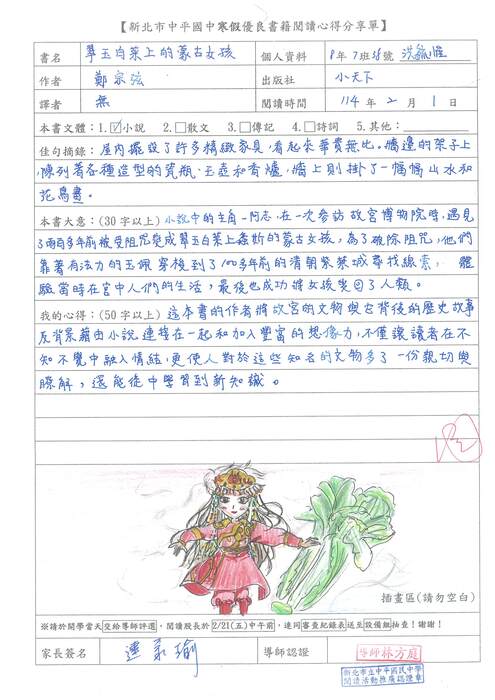 【新北市中平國中寒假優良書籍閱讀心得分享單】
書名 翠玉白菜上的蒙古女孩 個人資料 8年7班 號
作者 鄭宗弦 出版社 小天下
譯者 無 閱讀時間 114年2月1日
本書文體：1.☑小說 2.□散文 3.□傳記 4.□詩詞 5.其他：
佳句摘錄：屋內擺設了許多精緻家具，看起來華貴無比。牆邊的架子上
陳列著各種造型的瓷瓶、玉壺和香爐，牆上則掛了一幅幅山水和
花鳥畫。
本書大意：(30字以上)小說中的主角—阿志，在一次參訪故宮博物院時，遇見
了兩百多年前被受詛咒變成翠玉白菜上螽斯的蒙古女孩，為了破除詛咒，他們
靠著有法力的玉珮穿梭到了100多年前的清朝紫禁城尋找線索， 體
驗當時在宮中人們的生活，最後也成功將女孩變回了人類。
我的心得：(50字以上)這本書的作者將故宮的文物與它背後的歷史故事
及背景藉由小說連接在一起和加入豐富的想像力，不僅讓讀者在不
知不覺中融入情結，更使人對於這些知名的文物多了一份親切與
瞭解，還能從中學習到新知識。
插畫區(請勿空白)
※請於開學當天交給導師評選，閱讀股長於2/21(五)中午前，連同審查紀錄表送至設備組抽查！謝謝！
家長簽名 導師認證 導師林方庭
新北市立中平國民中學
閱讀活動推展認證章